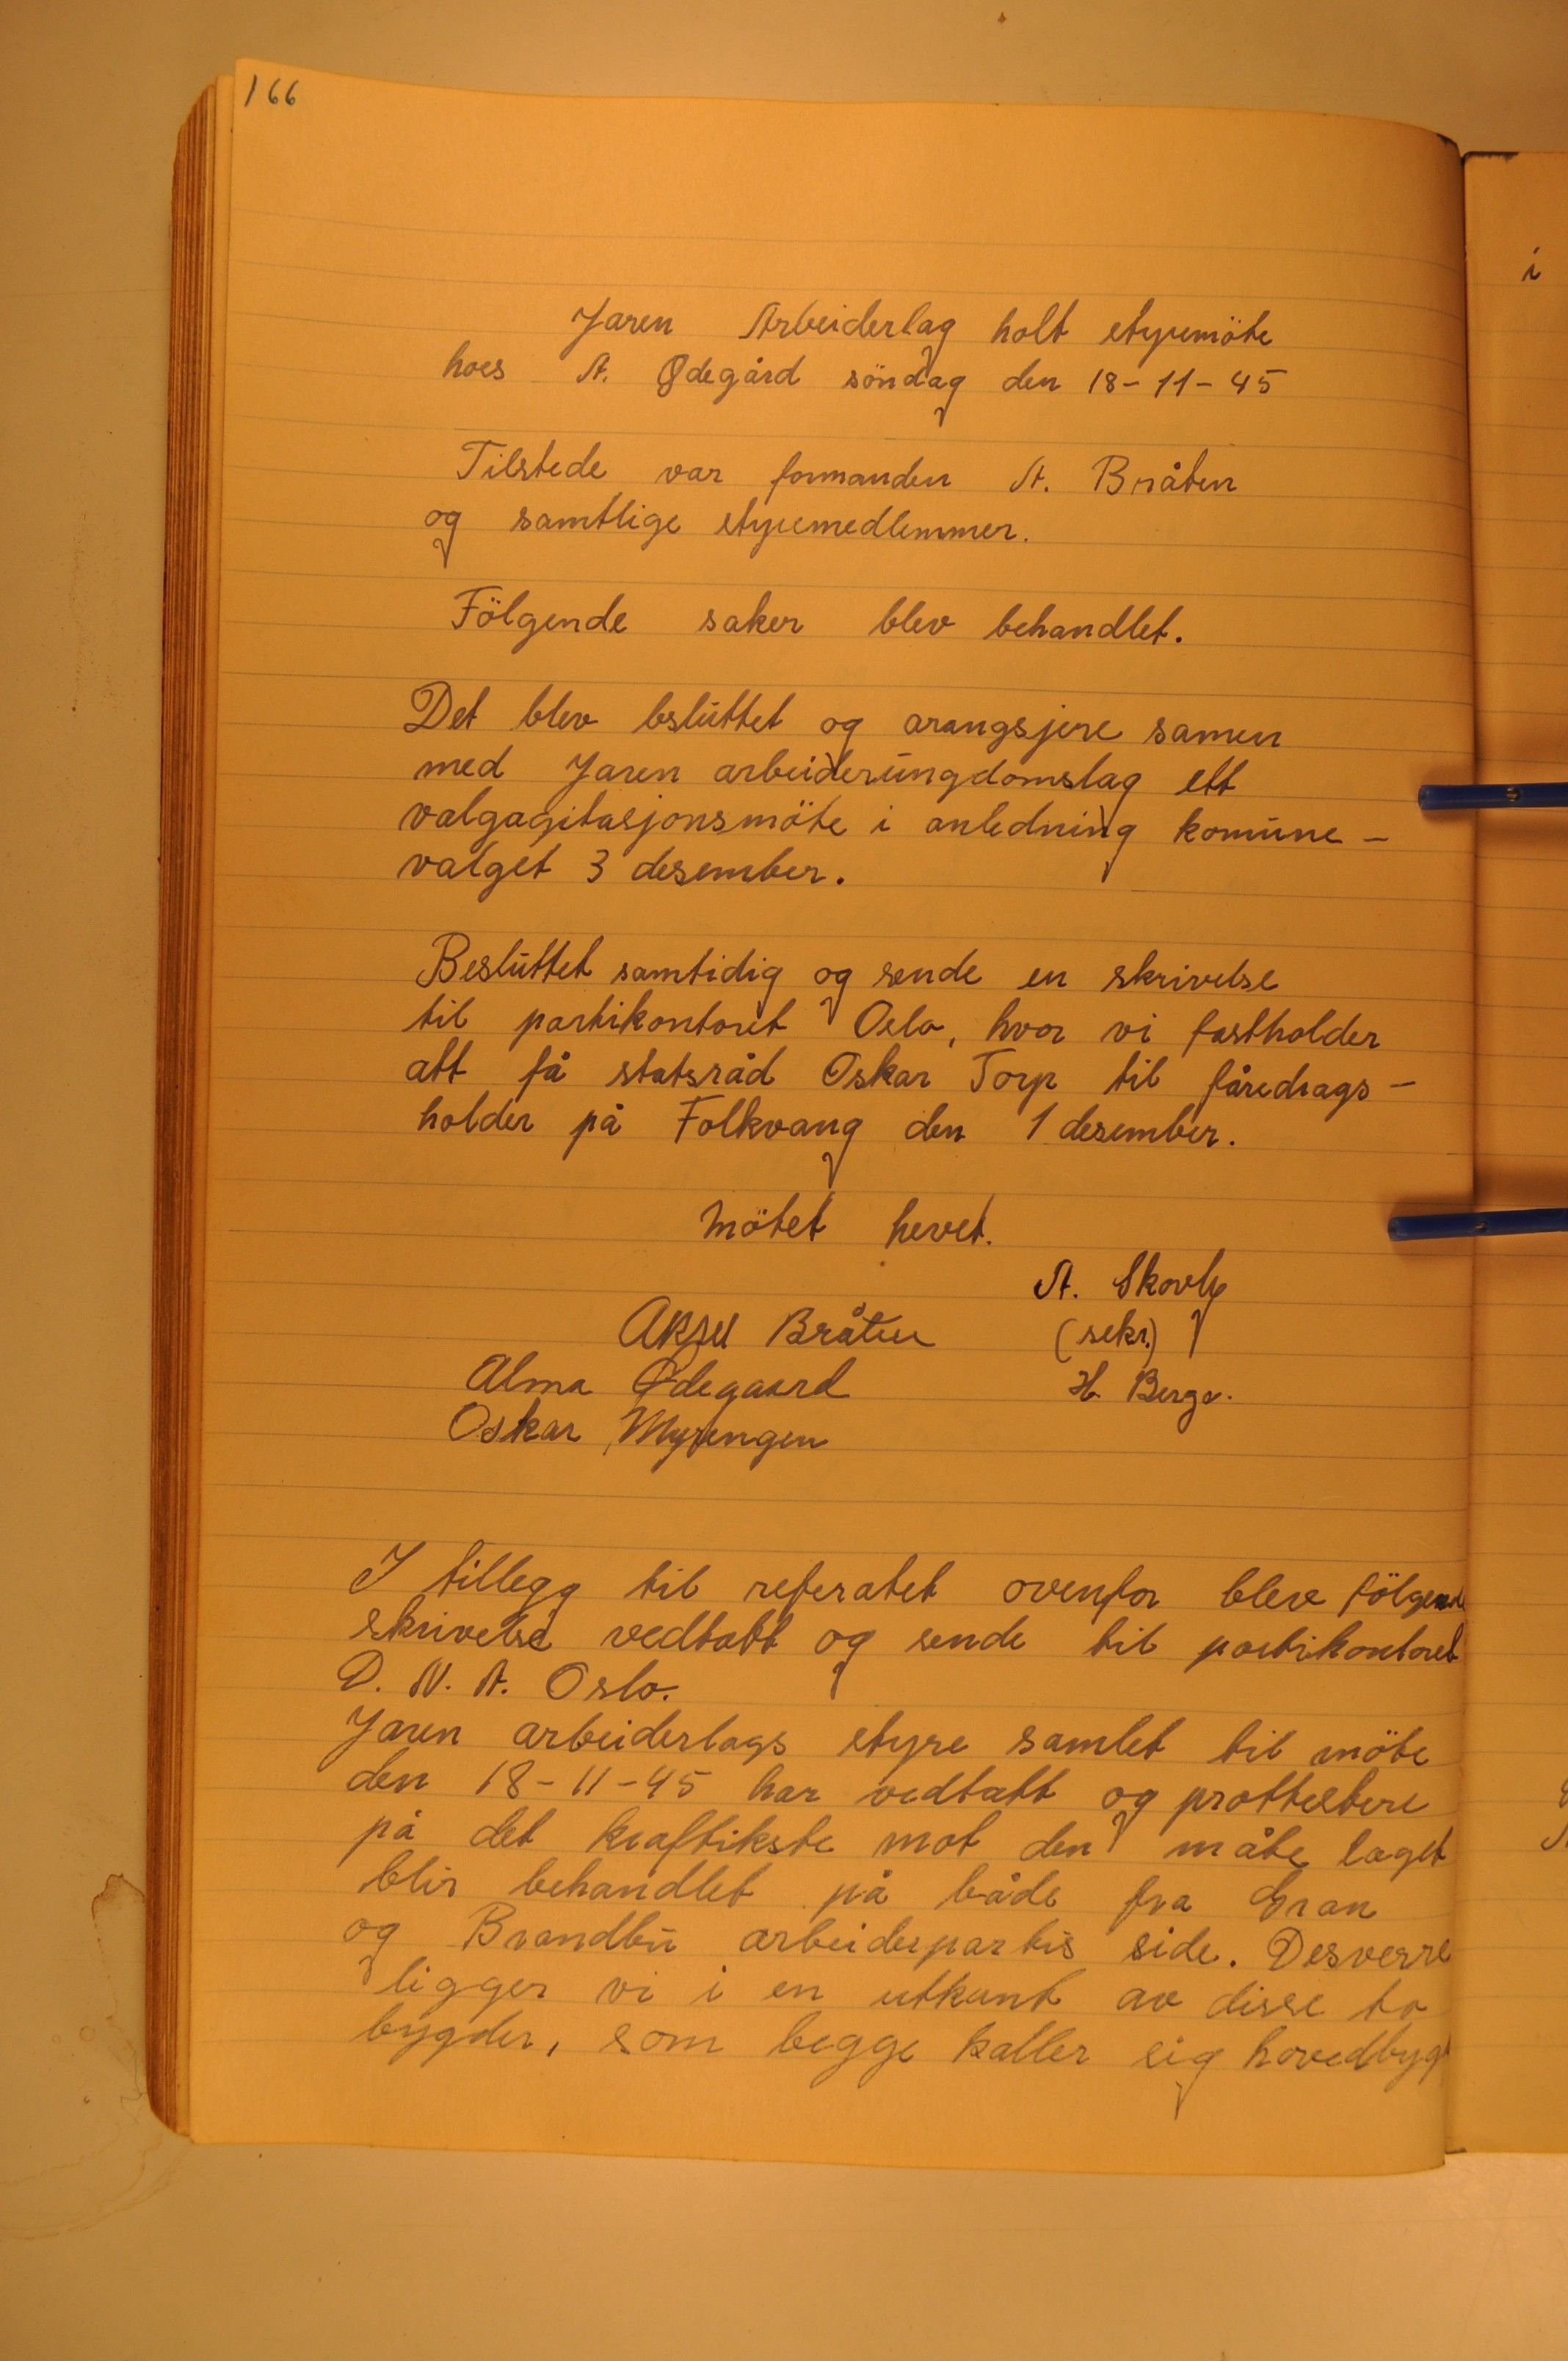 166
Jaren Arbeiderlag holt styremöte
hoes A. Ødegård söndag den 18-11-45
Tilstede var formanden A. Bråten
og samtlige styremedlemmer.
Fölgende saker blev behandlet.
Det blev bsluttet og arangsjere samen
med Jaren arbeiderungdomslag ett
valgagitasjonsmöte i anledning komune-
valget 3 desember.
Besluttet samtidig og sende en skrivelse
til partikontoret Oslo, hvor vi fastholder
att få statsråd Oskar Torp til fåredrags-
holder på Folkvang den 1 desember.
Mötet hevet.
A. Skovly
(sekr.)
Aksel Bråten
Alma Ødegaard
H. Berge.
Oskar Myrengen
I tillegg til referatet ovenfor blev fölgende
skrivelse vedtatt og sende til partikontoret
D. N. A. Oslo.
Jaren arbeiderlags styre samlet til möte
den 18-11-45 har vedtatt og prottestere
på det kraftikste mot den måte laget
blir behandlet på både fra Gran
og Brandbu arbeiderpartis side. Desverre
ligger vi i en utkant av disse to
bygder, som begge kaller sig hovedbyg
i